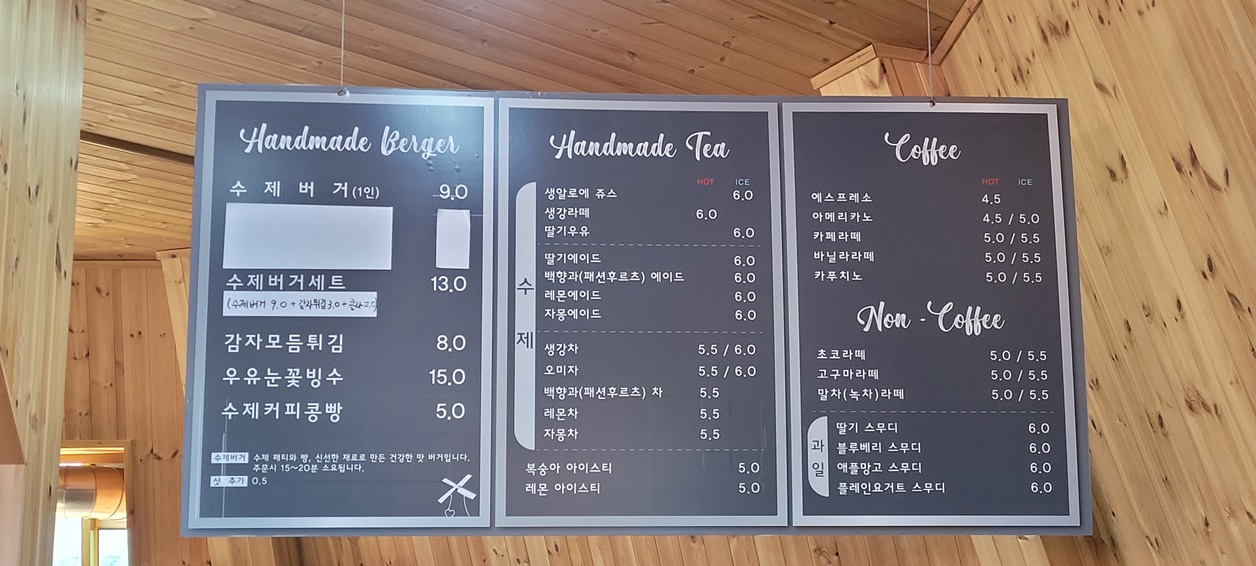 Handmade Berger
수 제 버 거(1인) 9.0
수제버거세트 13.0
(수제버거 9.0 + 감자튀김3.0 + 콜라2.0)
감자모듬튀김 8.0
우유눈꽃빙수 15.0
수제커피콩빵 5.0
수제버거 수제 패티와 빵, 신선한 재료로 만든 건강한 맛 버거입니다.
주문시 15~20분 소요됩니다.
샷 추가 0.5
Handmade Tea
HOT ICE
수제
생알로에 쥬스 6.0
생강라떼 6.0
딸기우유 6.0
딸기에이드 6.0
백향과(패션후르츠) 에이드 6.0
레몬에이드 6.0
자몽에이드 6.0
생강차 5.5 / 6.0
오미자 5.5 / 6.0
백향과(패션후르츠) 차 5.5
레몬차 5.5
자몽차 5.5
복숭아 아이스티 5.0
레몬 아이스티 5.0
Coffee
HOT ICE
에스프레소 4.5
아메리카노 4.5 / 5.0
카페라떼 5.0 / 5.5
바닐라라떼 5.0 / 5.5
카푸치노 5.0 / 5.5
Non - Coffee
초코라떼 5.0 / 5.5
고구마라떼 5.0 / 5.5
말차(녹차)라떼 5.0 / 5.5
과일
딸기 스무디 6.0
블루베리 스무디 6.0
애플망고 스무디 6.0
플레인요거트 스무디 6.0